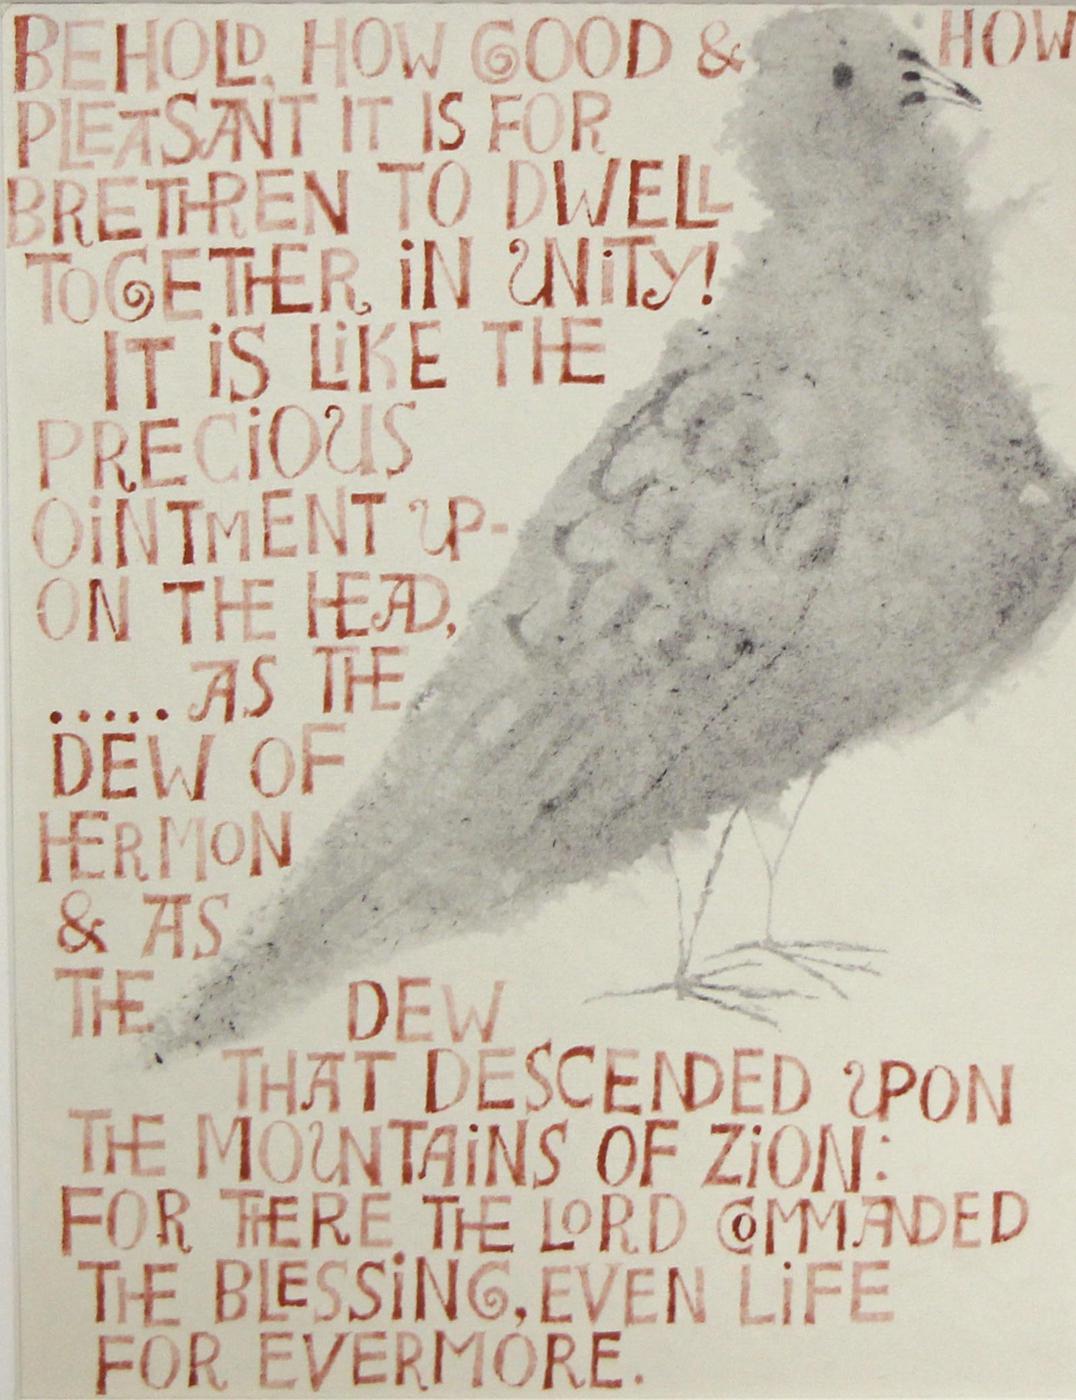 BEHOLD, HOW GOOD & HOW
PLEASANT IT IS FOR
BRETHREN TO DWELL
TOGETHER iN UNiTY!
IT iS LiKE THE
PRECiOUS
OiNTMENT UP-
ON THE HEAD,
..... AS THE
DEW OF
HERMON
& AS
THE DEW
THAT DESCENDED UPON
THE MOUNTAiNS OF ZiON:
FOR THERE THE LORD COMMANDED
THE BLESSiNG, EVEN LiFE
FOR EVERMORE.